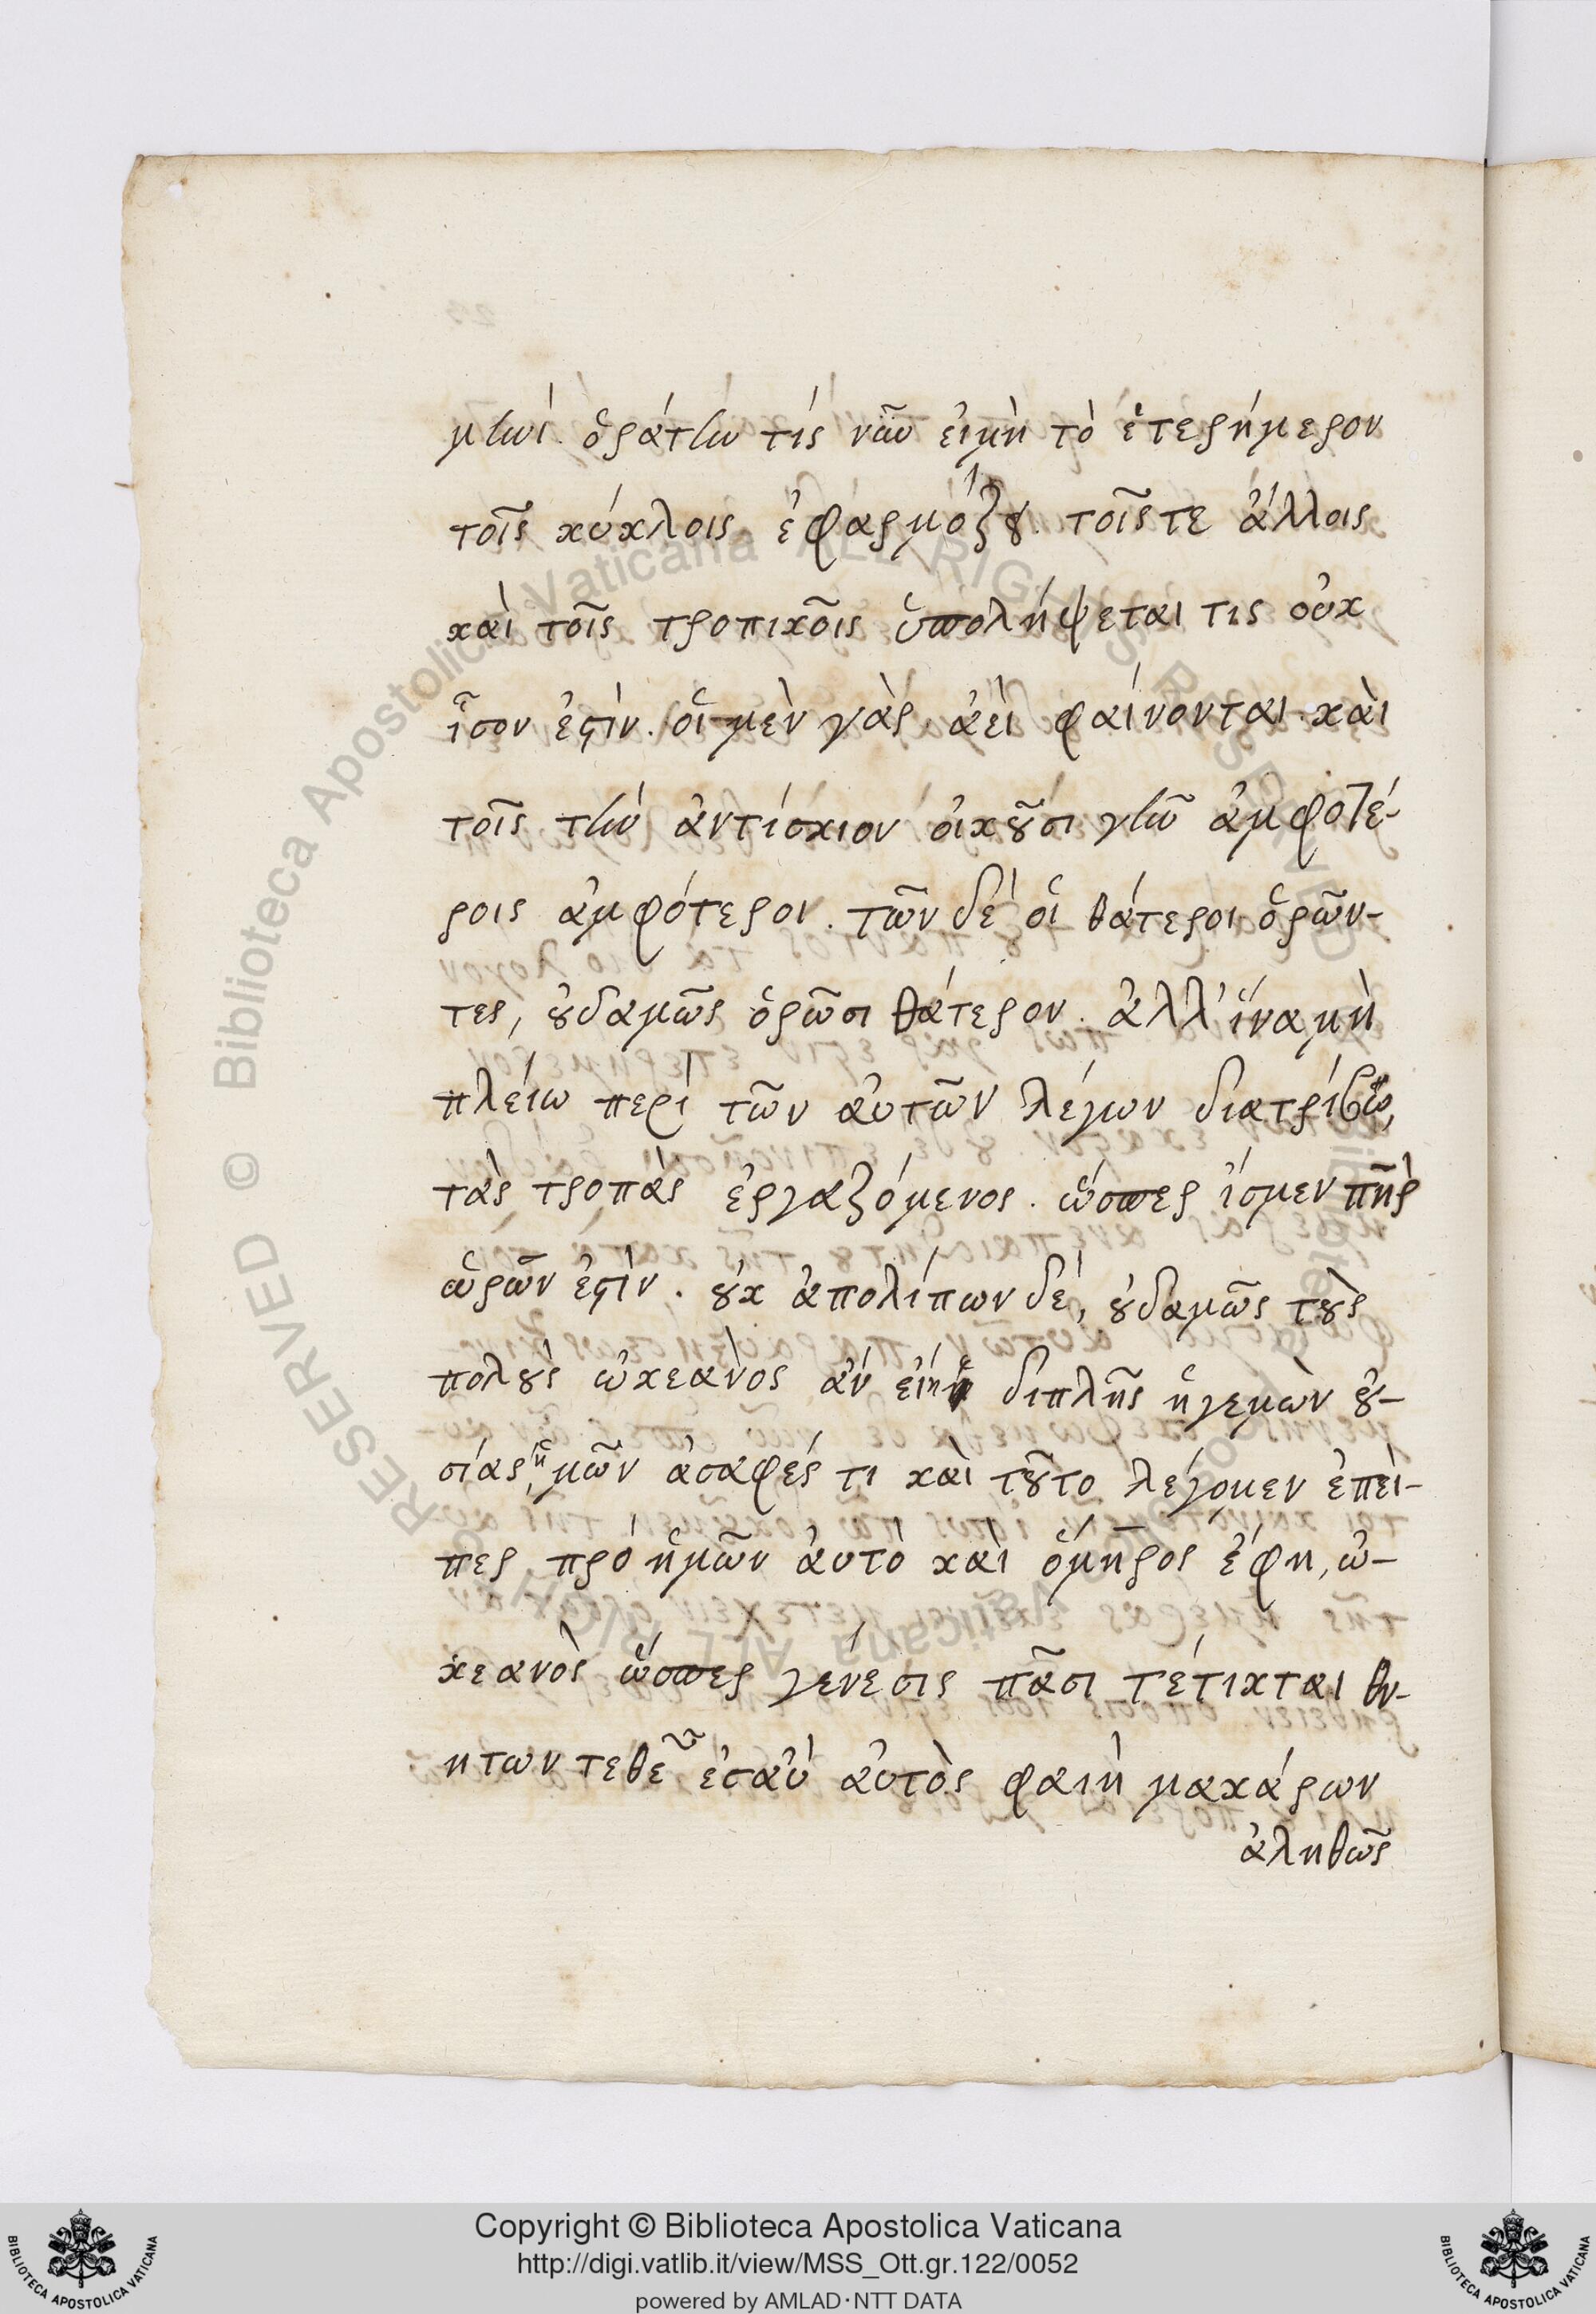 μὴν. ὁράτω τίς νῦν εἰμὴ τὸ ἑτερήμερον
τοῖς κύκλοις ἐφαρμόζου. τοῖς τε ἄλλοις
καὶ τοῖς τροπικοῖς ὑπολήψεται τις οὐκ
ἴσον ἐστίν. οἱ μὲν γὰρ ἀεὶ φαίνονται καὶ
τοῖς τὴν ἀντίσκιον οἰκοῦσι γῆν ἀμφοτέ-
ροις ἀμφότερον. τῶν δὲ οἱ θάτεροι ὁρῶν-
τες, οὐδαμῶς ὁρῶσι θάτερον. ἀλλ' ἵνα μὴ
πλείω περὶ τῶν αὐτῶν λέγων διατρίβω,
τὰς τροπὰς ἐργαζόμενος. ὥσπερ ἴσμεν πῆρ
ὡρῶν ἐστὶν. οὐκ ἀπολίπων δέ, οὐδαμῶς τοὺς
πολοὺς ὠκεανὸς ἂν εἴη διπλῆς ἡγεμὼν οὐ-
σίας, ἡμῶν ἀσαφές τι καὶ τοῦτο λέγομεν ἐπεί-
περ πρὸ ἡμῶν αὐτὸ καὶ ὅμηρος ἔφη, ὠ-
κεανὸς ὥσπερ γένεσις πᾶσι τέτικται θν-
ητων τε θε͂ ἐσαὺ αὐτὸς φαιὴ μακάρων
ἀληθῶς
Copyright © Biblioteca Apostolica Vaticana
http://digi.vatlib.it/view/MSS_Ott.gr.122/0052
powered by AMLAD·NTT DATA